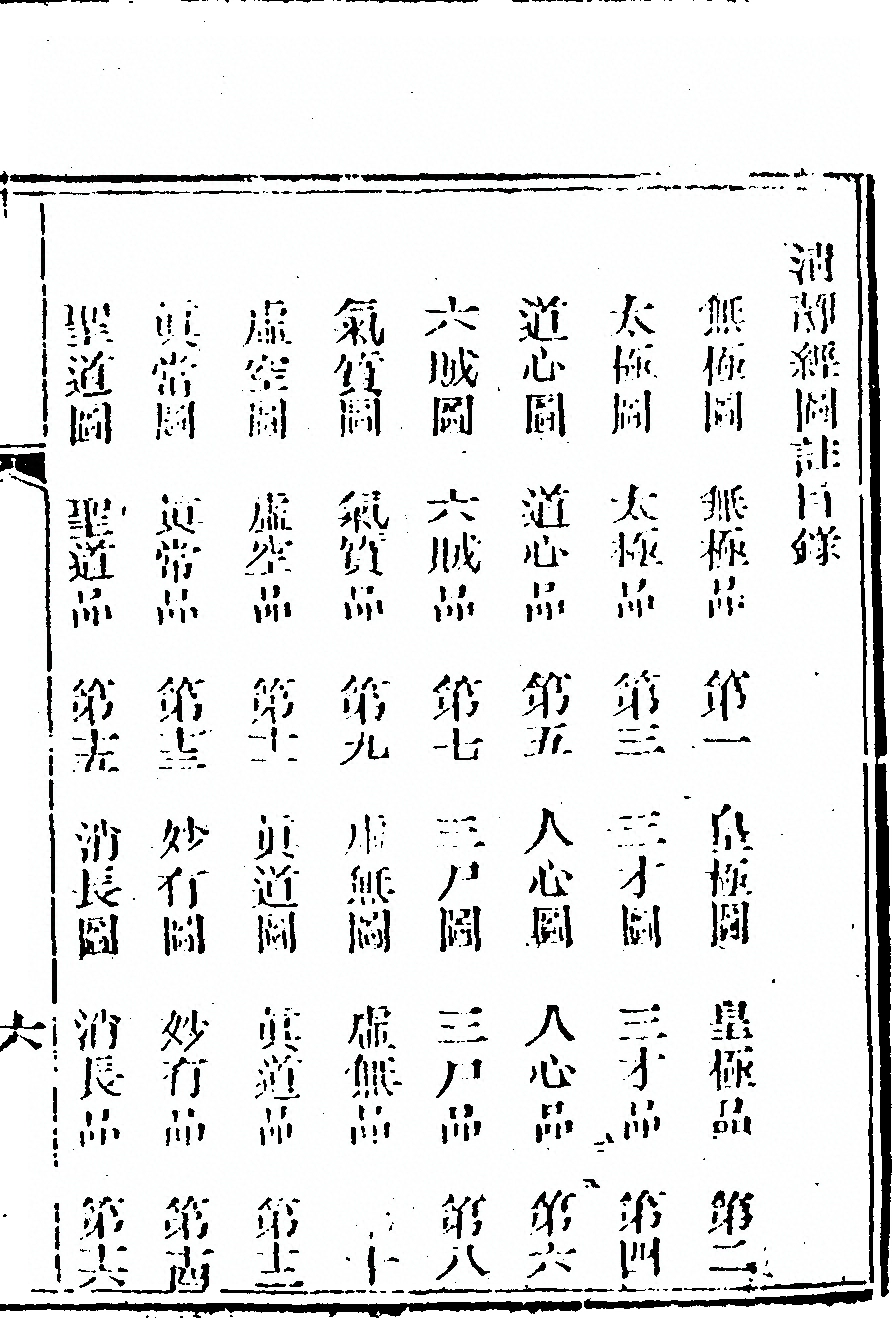 清靜經圖註目錄
無極圖 無極品 第一 皇極圖 皇極品 第二
太極圖 太極品 第三 三才圖 三才品 第四
道心圖 道心品 第五 人心圖 人心品 第六
六賊圖 六賊品 第七 三尸圖 三尸品 第八
氣質圖 氣質品 第九 虛無圖 虛無品 十
虛空圖 虛空品 第十一 真道圖 真道品 第十二
真常圖 真常品 第十三 妙有圖 妙有品 第十四
聖道圖 聖道品 第十五 消長圖 消長品 第十六
六